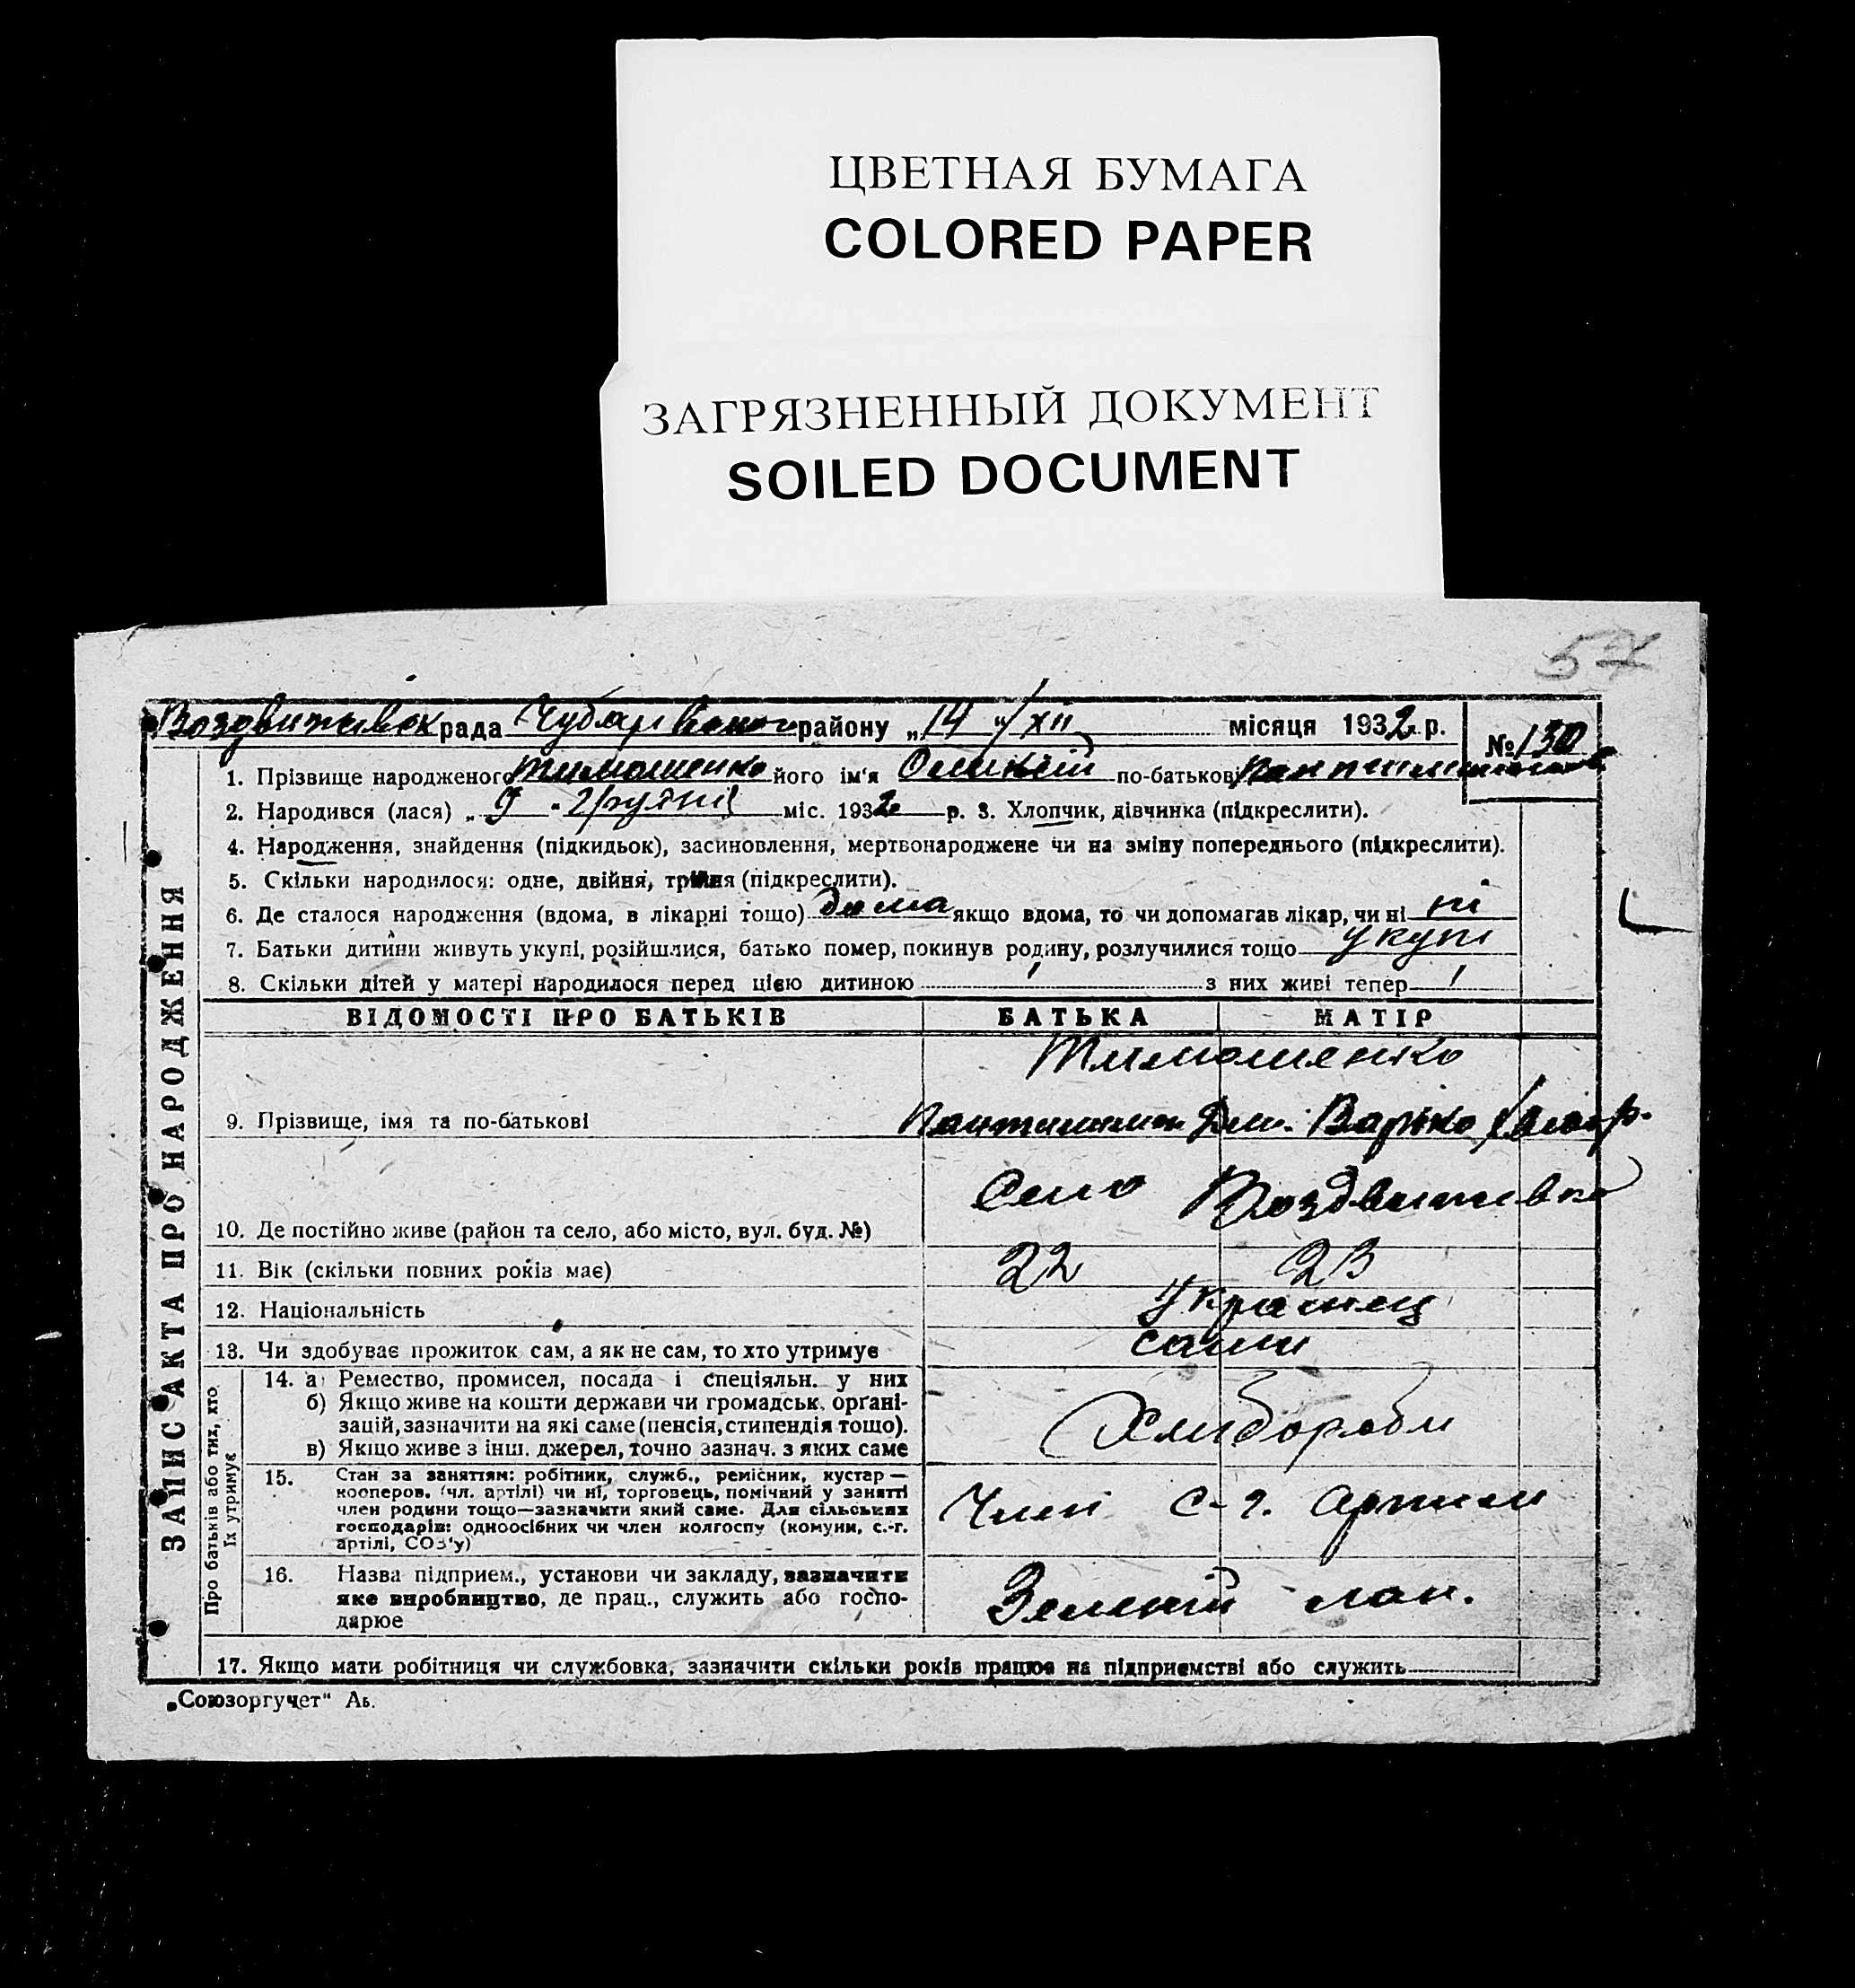 ЦВЕТНАЯ БУМАГА
COLORED PAPER
ЗАГРЯЗНЕННЫЙ ДОКУМЕНТ
SOILED DOCUMENT
57
рада району „14“ XII місяця 1932 р. № 130
1. Прізвище народженого Тимошенко його ім'я Олексій по-батькові
2. Народився (лася) „9“ грудня міс. 1932 р. 3. Хлопчик, дівчинка (підкреслити).
4. Народження, знайдення (підкидьок), засиновлення, мертвонароджене чи на зміну попереднього (підкреслити).
5. Скільки народилося: одне, двійня, трійня (підкреслити).
6. Де сталося народження (вдома, в лікарні тощо) дома якщо вдома, то чи допомагав лікар, чи ні ні
7. Батьки дитини живуть укупі, розійшлися, батько помер, покинув родину, розлучилися тощо укупі
8. Скільки дітей у матері народилося перед цією дитиною 1 з них живі тепер 1
ВІДОМОСТІ ПРО БАТЬКІВ БАТЬКА МАТІР
Тимошенко
9. Прізвище, імя та по-батькові Дми.
Село Воздвижевка
10. Де постійно живе (район та село, або місто, вул. буд. №)
11. Вік (скільки повних років має) 22 23
12. Національність Украінец
13. Чи здобуває прожиток сам, а як не сам, то хто утримує сами
14. а) Ремество, промисел, посада і спеціяльн. у них
б) Якщо живе на кошти держави чи громадськ. орґані-
зацій, зазначити на які саме (пенсія, стипендія тощо).
в) Якщо живе з інш. джерел, точно зазнач. з яких саме
Хлибороби
15. Стан за заняттям: робітник, служб., ремісник, кустар —
кооперов. (чл. артілі) чи ні, торговець, помічний у занятті
член родини тощо—зазначити який саме. Для сільських
господарів: одноосібних чи член колгоспу (комуни, с.-г.
артілі, СОЗ'у)
с-г. артили
16. Назва підприєм., установи чи закладу, зазначити
яке виробництво, де прац., служить або госпо-
дарює
Зелений лан.
17. Якщо мати робітниця чи службовка, зазначити скільки років працює на підприємстві або служить
ЗАПИС АКТА ПРО НАРОДЖЕННЯ
Про батьків або тих, хто
їх утримує
„Союзоргучет“ Аь.